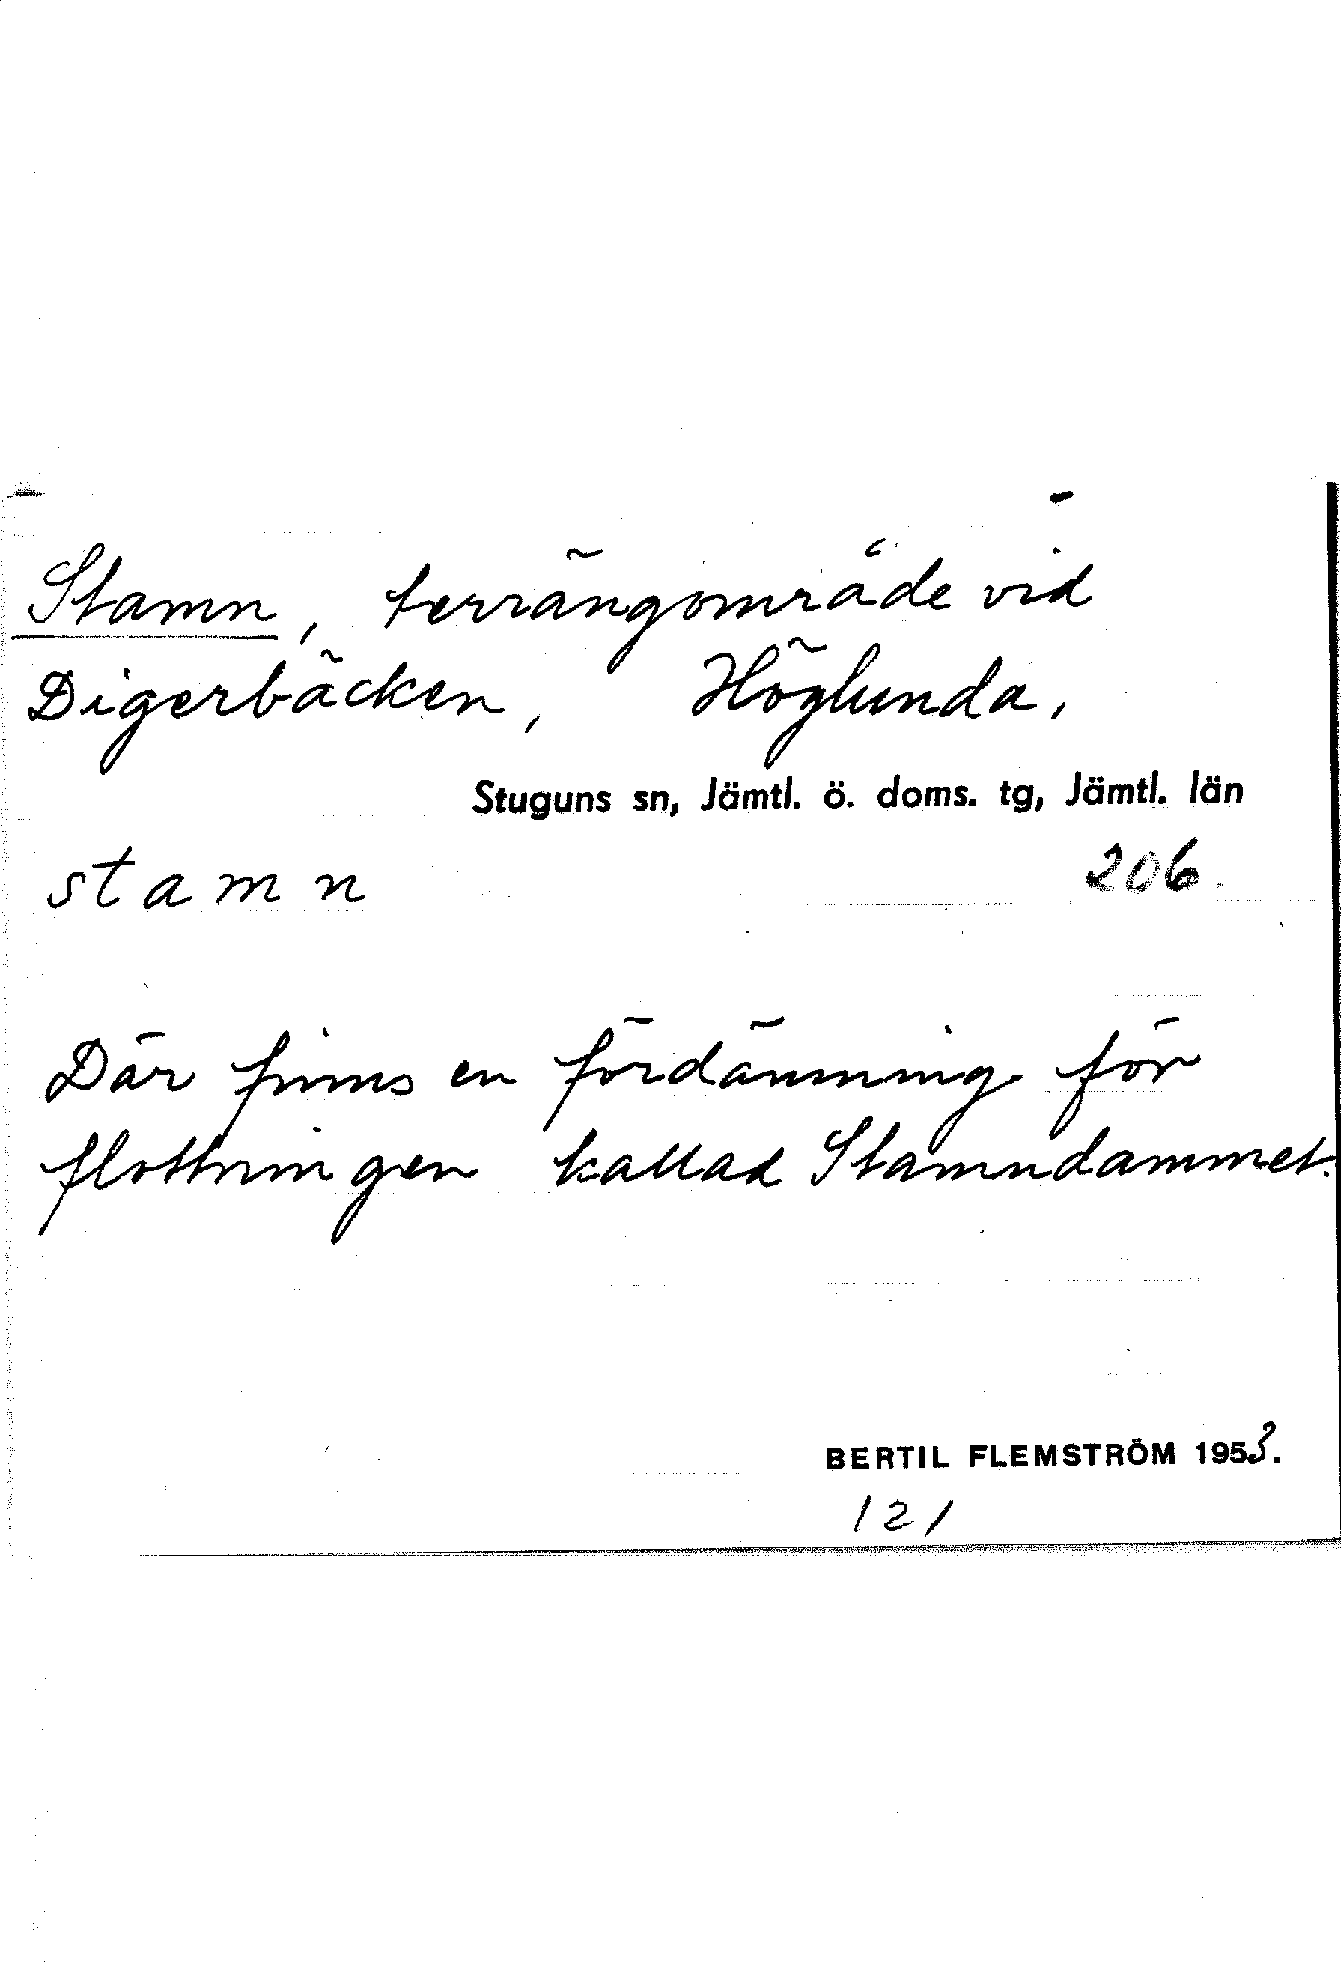 Stamn, terrängområde vid
Digerbäcken, Höglunda,
Stuguns sn, Jämtl. ö. doms. tg, Jämtl. län
stamn 206
Där finns en fördämning för
flottningen kallad Stamndammet.
BERTIL FLEMSTRÖM 1953.
121